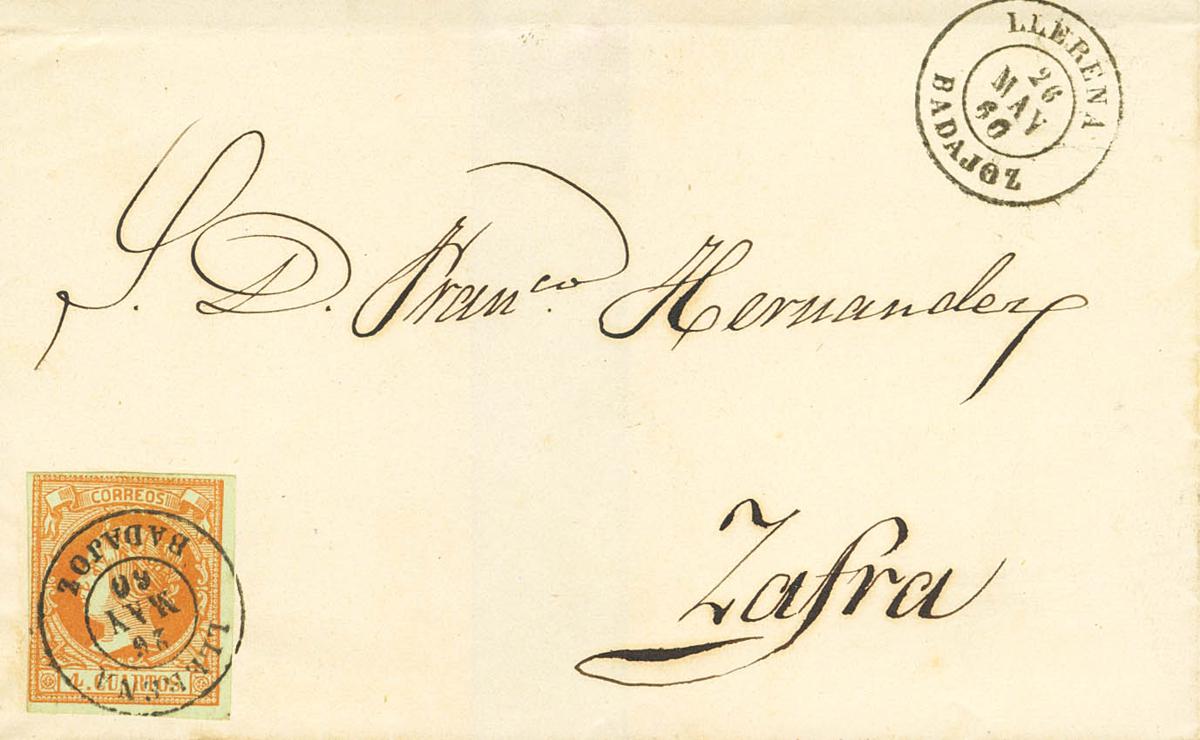 LLERENA
26
MAY
60
BADAJOZ
S. D. Franco. Hernandez
Zafra
CORREOS
BADAJOZ
60
MAY
26
4. CUARTOS